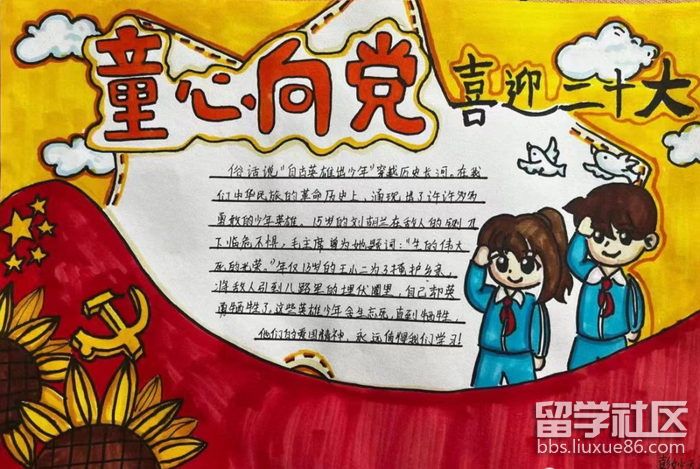 童心向党
喜迎二十大
俗话说“自古英雄出少年”穿越历史长河。在我
们中华民族的革命历史上，涌现出了许许多多
勇敢的少年英雄。15岁的刘胡兰在敌人的铡刀
下临危不惧，毛主席曾为她题词：“生的伟大
死的光荣。”年仅13岁的王小二为了掩护乡亲，
将敌人引到八路军的埋伏圈里，自己却英
勇牺牲了，这些英雄少年舍生忘死，直到牺牲，
他们的爱国精神，永远值得我们学习！
留学社区
bbs.liuxue86.com